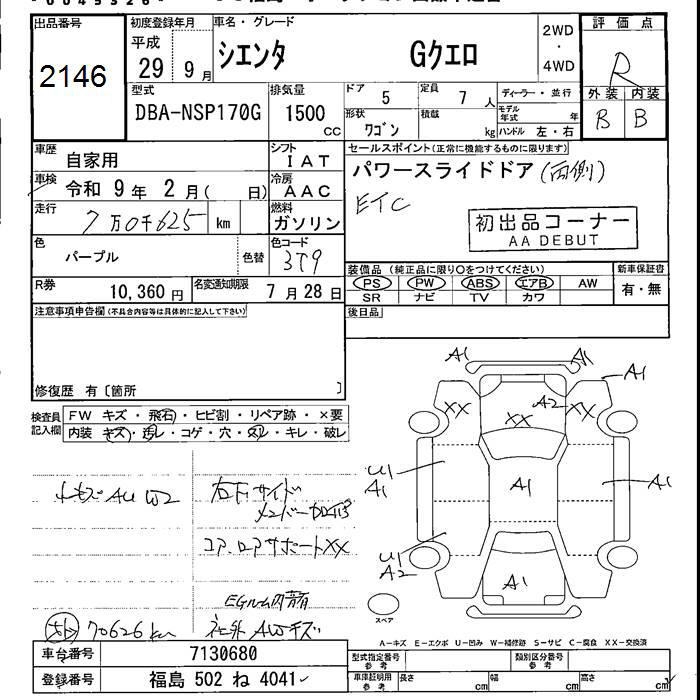 出品番号
2146
初度登録年月
平成
29 9月
車名・グレード
シエンタ Gクエロ
2WD
・
4WD
評価点
R
外装 内装
B B
型式
DBA-NSP170G
排気量
1500
cc
ドア 5
定員 7 人
形状
ワゴン
積載
kg
ディーラー・並行
モデル
年式 年
ハンドル 左・右
車歴 自家用
シフト
IAT
車検 令和 9年 2月( 日)
冷房
AAC
走行 7万0千625 km
燃料
ガソリン
色
パープル
色替
色コード
3T9
R券 10,360円
名変通知期限 7月28日
セールスポイント(正常に機能するものに限ります)
パワースライドドア(両側)
ETC
初出品コーナー
AA DEBUT
装備品 (純正品に限り○をつけてください)
PS PW ABS エアB AW
SR ナビ TV カワ
新車保証書
有・無
後日品
注意事項申告欄(不具合内容等は具体的に記入して下さい)
修復歴 有〔箇所 〕
検査員
記入欄
FW キズ・飛石・ヒビ割・リペア跡・×要
内装 キズ・汚レ・コゲ・穴・スレ・キレ・破レ
右下サイド
メンバー加修
コア、ロアサポートXX
EGルーム内錆
社外AWキズ
70626km
A1
A1
A1
XX
XX
A2
XX
U1
A1
A1
A1
U1
A2
A1
スペア
A-キズ E-エクボ U-凹み W-補修跡 S-サビ C-腐食 XX-交換済
車台番号 7130680
登録番号 福島 502 ね 4041
型式指定番号
参考
類別区分番号
参考
車庫証明用
参考
長さ cm
幅 cm
高さ cm